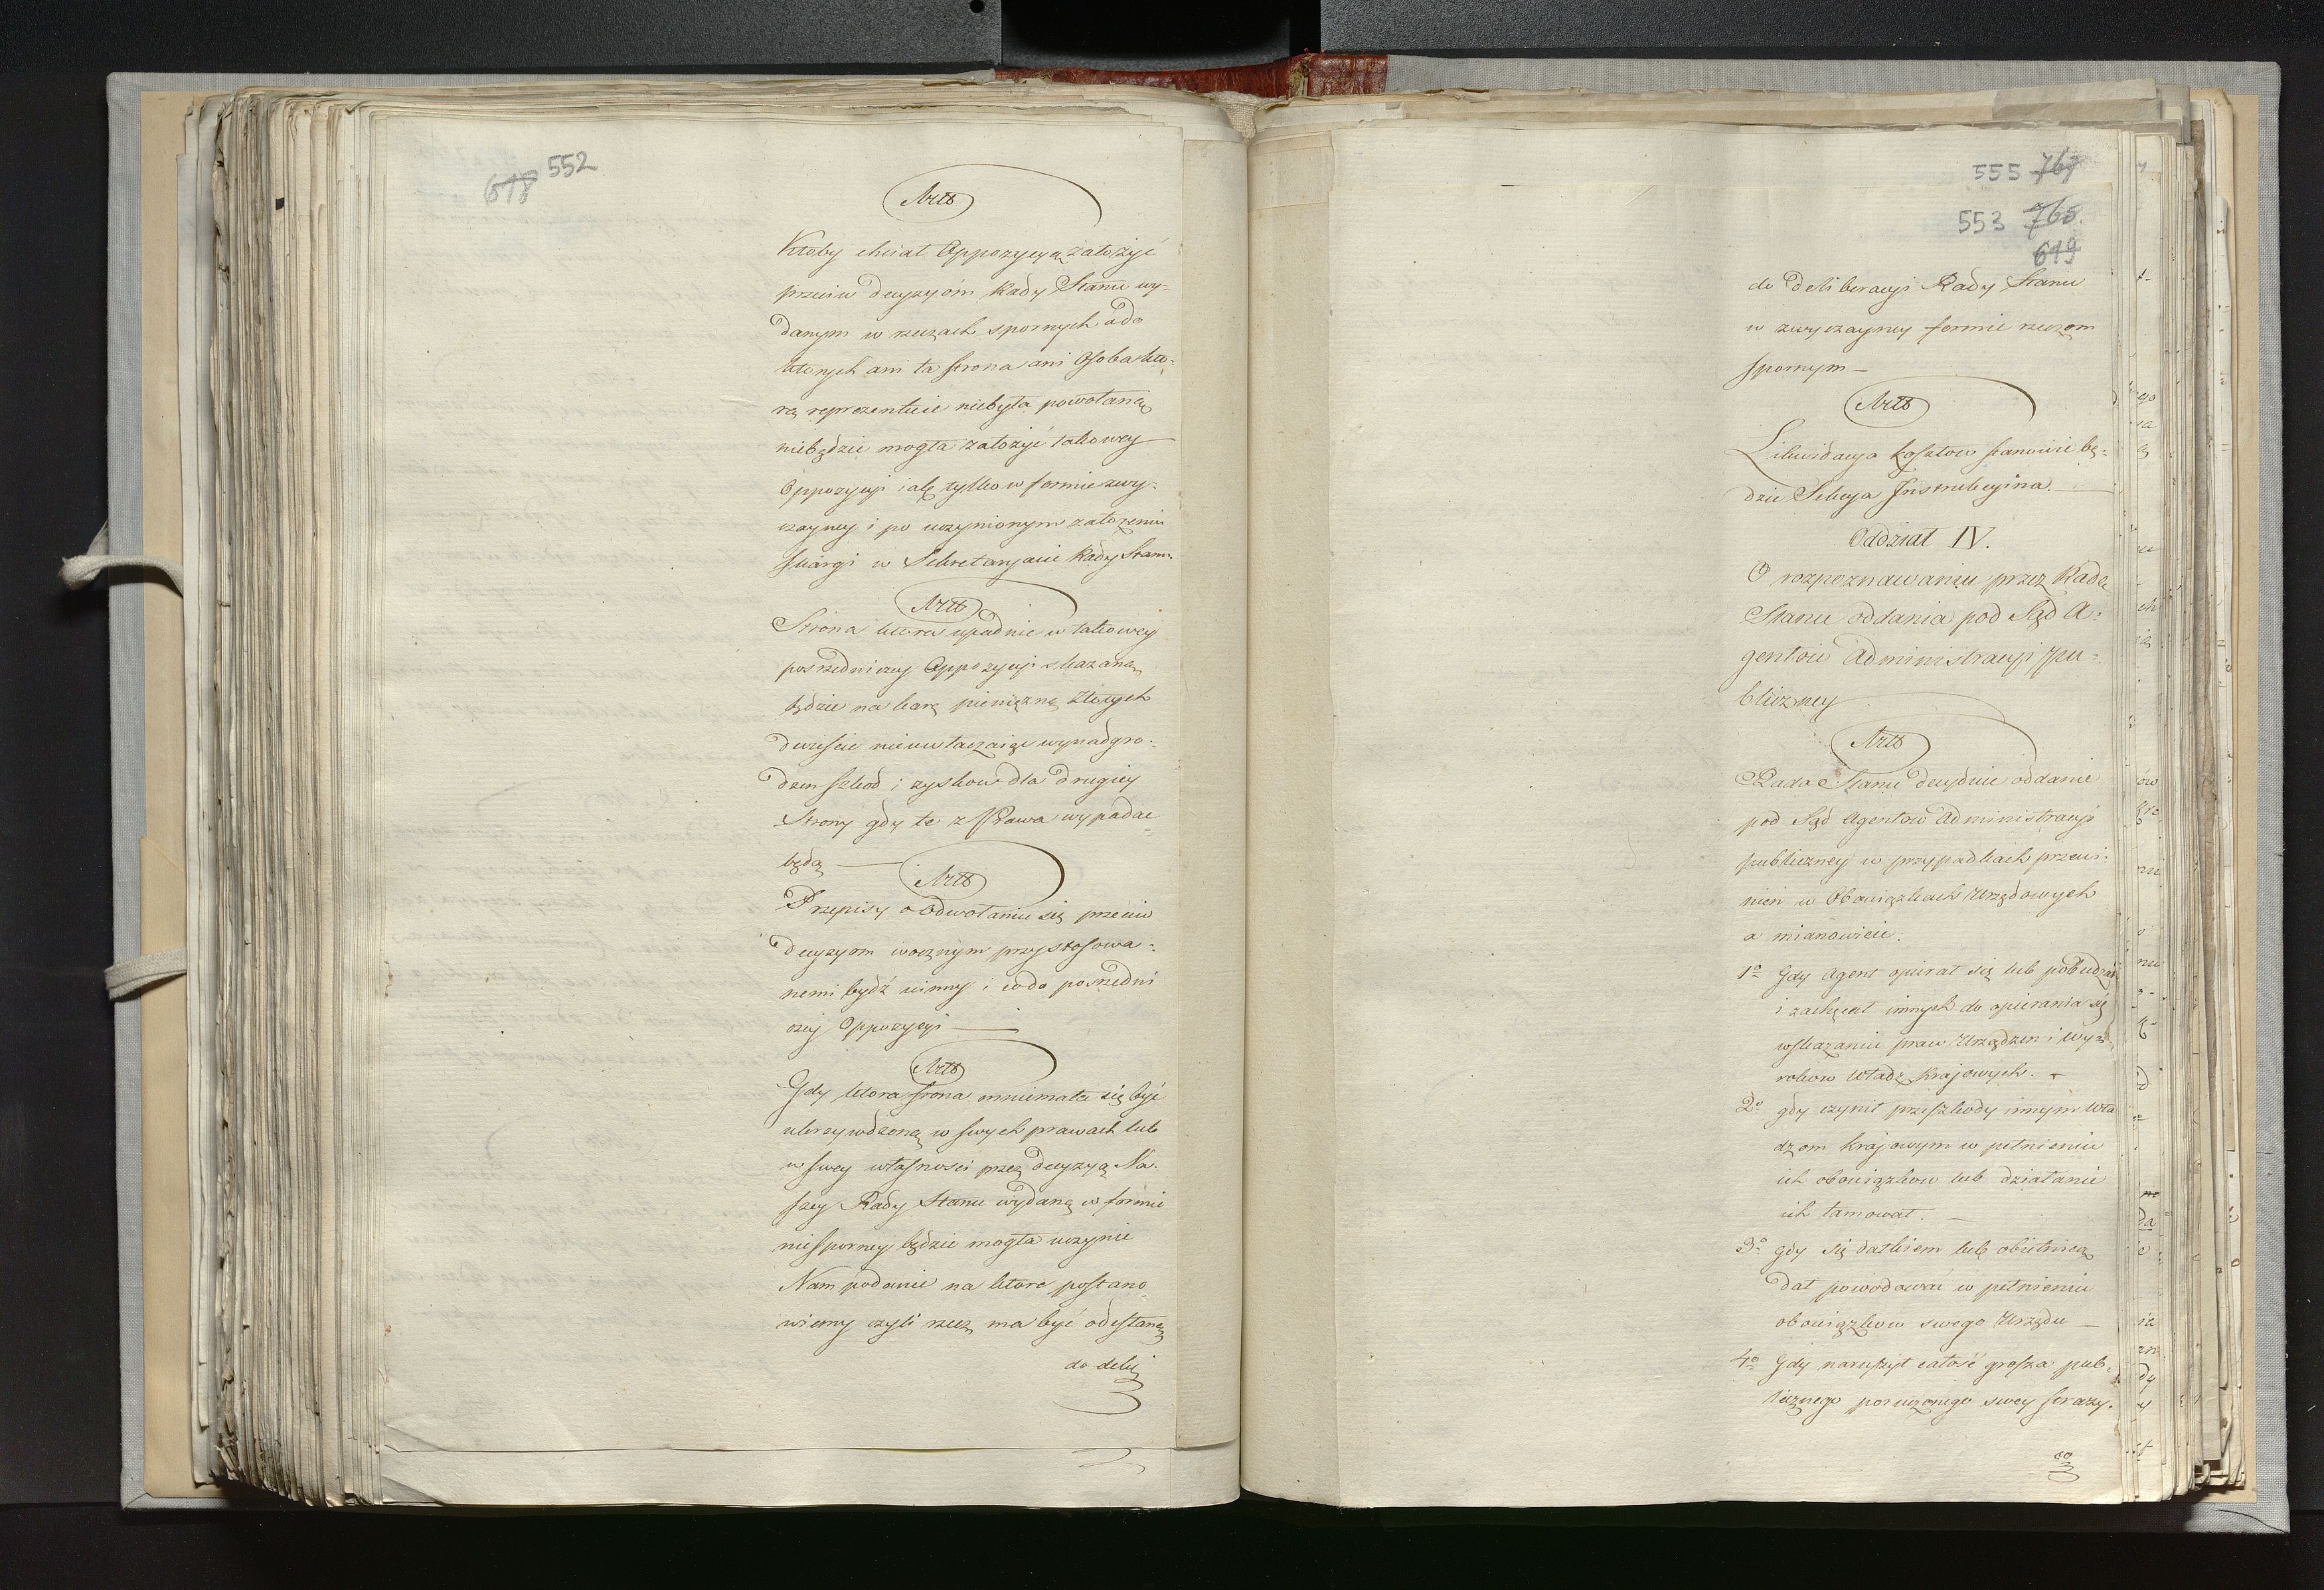 618 552
Artł
Ktoby chciał Oppozycyą założyć
przeciw decyzyóm Rady Stanu wy-
danym w rzeczach spornych a do
których ani ta strona ani Osoba któ-
rą reprezentuie niebyła powołaną
niebędzie mogła założyć takowey
Oppozycyi iak tylko w formie zwy-
czayney i po uczynionym założeniu
skargi w Sekretaryacie Rady Stanu
Artł
Strona która upadnie w takowey
posrzedniczey Oppozycyi skazaną
będzie na karę pieniężną Złotych
dwieście nieuwłaczaiąc wynadgro-
dzen szkod i zyskow dla drugiey
Strony gdy te z Prawa wypadać
będą
Artł
Przepisy o Odwołaniu się przeciw
decyzyom wocznym przystosowa-
nemi bydź winny i co do posrzedni
czey Oppozycyi
Artł
Gdy która strona mniemała się być
ukrzywdzoną w swych prawach lub
w swey własnosci przez decyzyą Na-
szey Rady Stanu wydaną w formie
niesporney będzie mogła uczynić
Nam podanie na które postano
wiemy czyli rzecz ma być odesłaną
do deli
555 767
553 765
619
do deliberacyi Rady Stanu
w zwyczayney formie rzeczom
spornym
Artł
Likwidacya kosztow stanowić bę-
dzie Sekcya Instrukcyina.
Oddział IV.
O rozpoznawaniu przez Radę
Stanu oddania pod Sąd A-
gentow Administracyi pu-
bliczney
Artł
Rada Stanu decyduie oddanie
pod Sąd Agentow Administracyi
publiczney w przypadkach przewi-
nien w Obowiązkach Urzędowych
a mianowicie:
1o Gdy Agent opierał się lub pobudzał
i zachęcał innych do opierania się
wskazaniu praw Urządzen i wy-
rokow Władz Krajowych.
2o gdy czynił przeszkody innym Wła
dzom krajowym w pełnieniu
ich obowiązkow lub działanie
ich tamował.
3o gdy się datkiem lub obietnicą
dał powodować w pełnieniu
obowiązkow swego Urzędu
4o Gdy naruszył całość grosza pub-
licznego poruczonego swey straży.